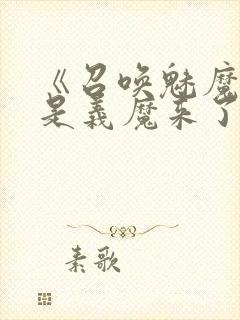 《召唤魅魔
是義魔来了
素歌